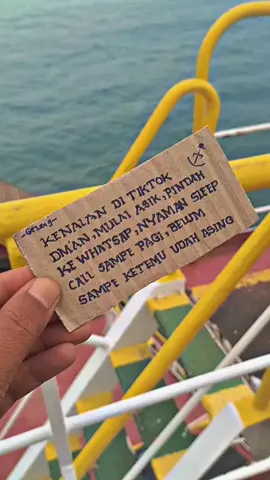 -Gelap-
KENALAN DI TIKTOK
DMAN, MULAI ASIK, PINDAH
KE WHATSAP, NYAMAN SLEEP
CALL SAMPE PAGI, BELUM
SAMPE KETEMU UDAH ASING